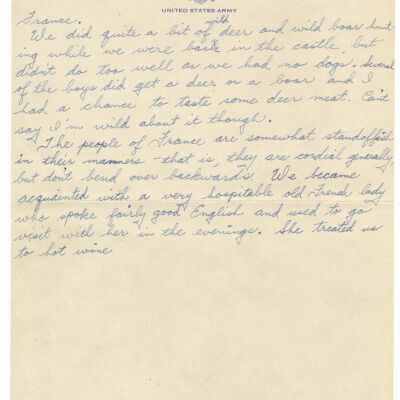 UNITED STATES ARMY
France.
We did quite a bit of wild deer and wild boar hunt-
ing while we were back in the castle, but
didn't do too well as we had no dogs. Several
of the boys did get a deer or a boar and I
had a chance to taste some deer meat. Can't
say I'm wild about it though.
The people of France are somewhat standoffish
in their manners - that is, they are cordial generally
but don't bend over backwards. We became
acquainted with a very hospitable old French lady
who spoke fairly good English and used to go
visit with her in the evenings. She treated us
to hot wine